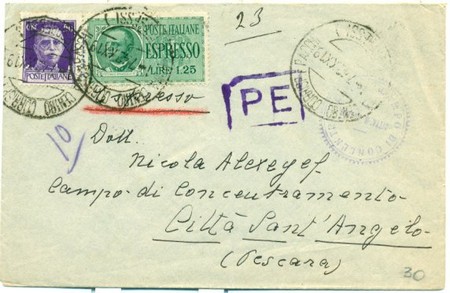 23
POSTE ITALIANE
POSTE ITALIANE
ESPRESSO
LIRE 1.25
Espresso
PE
10
Dott.
Nicola Alexeyef
Campo di Concentramento
Città Sant'Angelo
(Pescara)
30